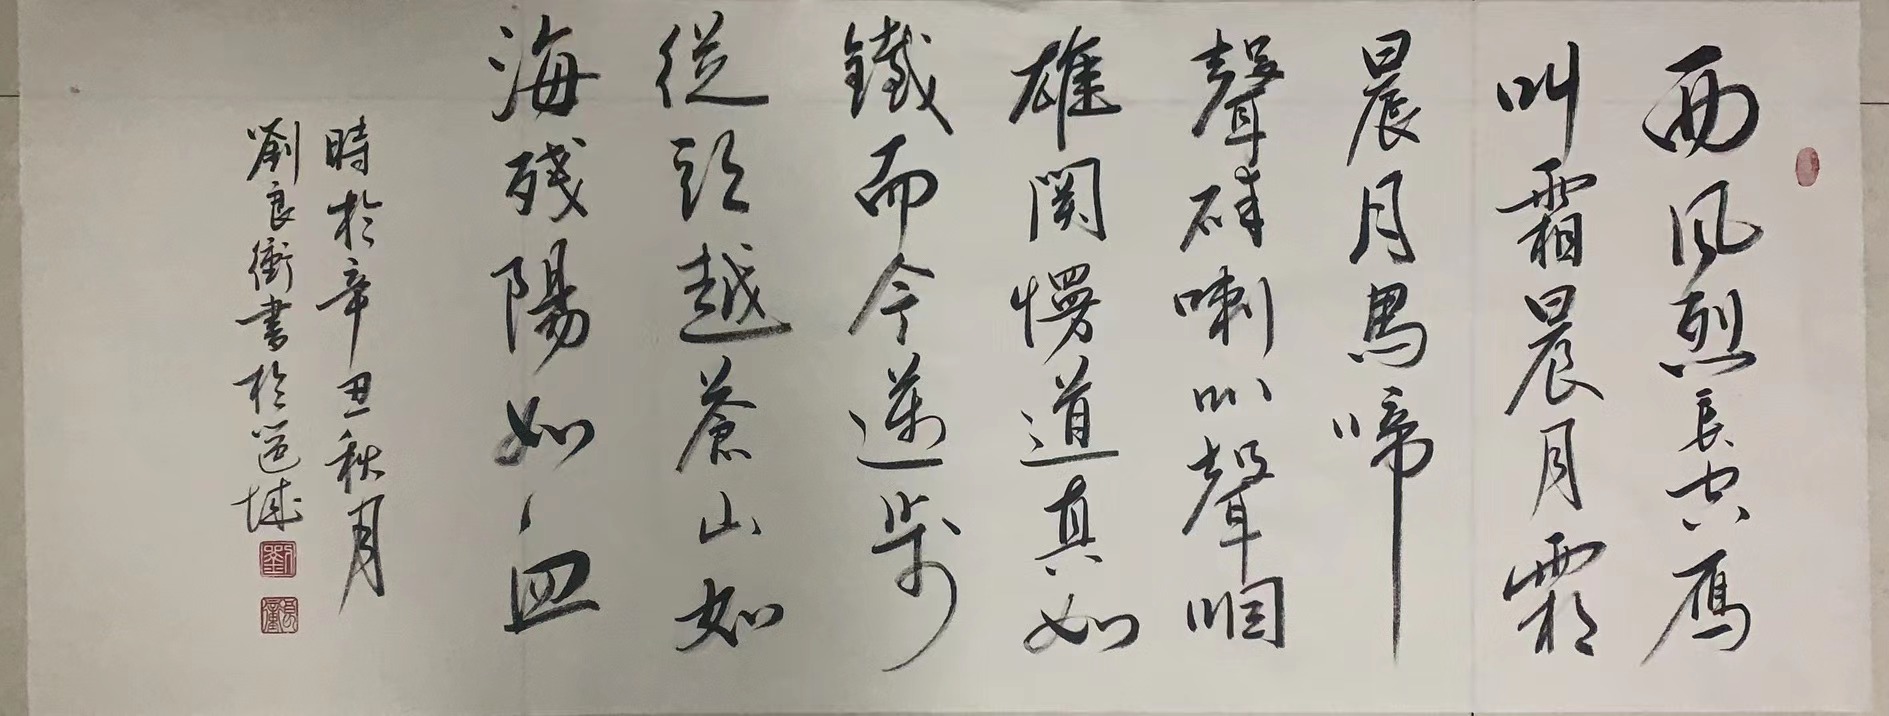 西风烈長空雁
叫霜晨月霜
晨月馬啼
聲碎喇叭聲咽
雄関慢道真如
鐵而今邁步
從頭越蒼山如
海残陽如血
時於辛丑秋月
劉良衛書於邕城